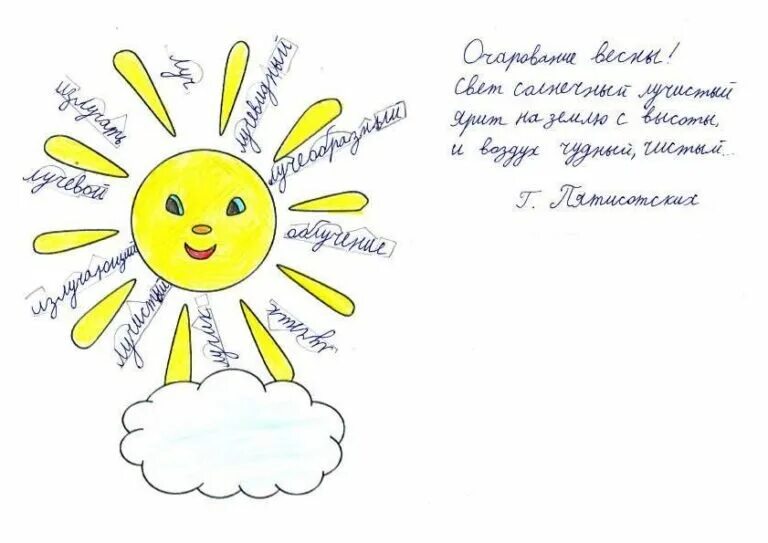 луч
лучевидный
лучеобразный
облучение
лучик
лучистый
излучающий
лучевой
излучать
Очарование весны!
Свет солнечный лучистый
Ярит на землю с высоты,
и воздух чудный, чистый...
Г. Пятисотских